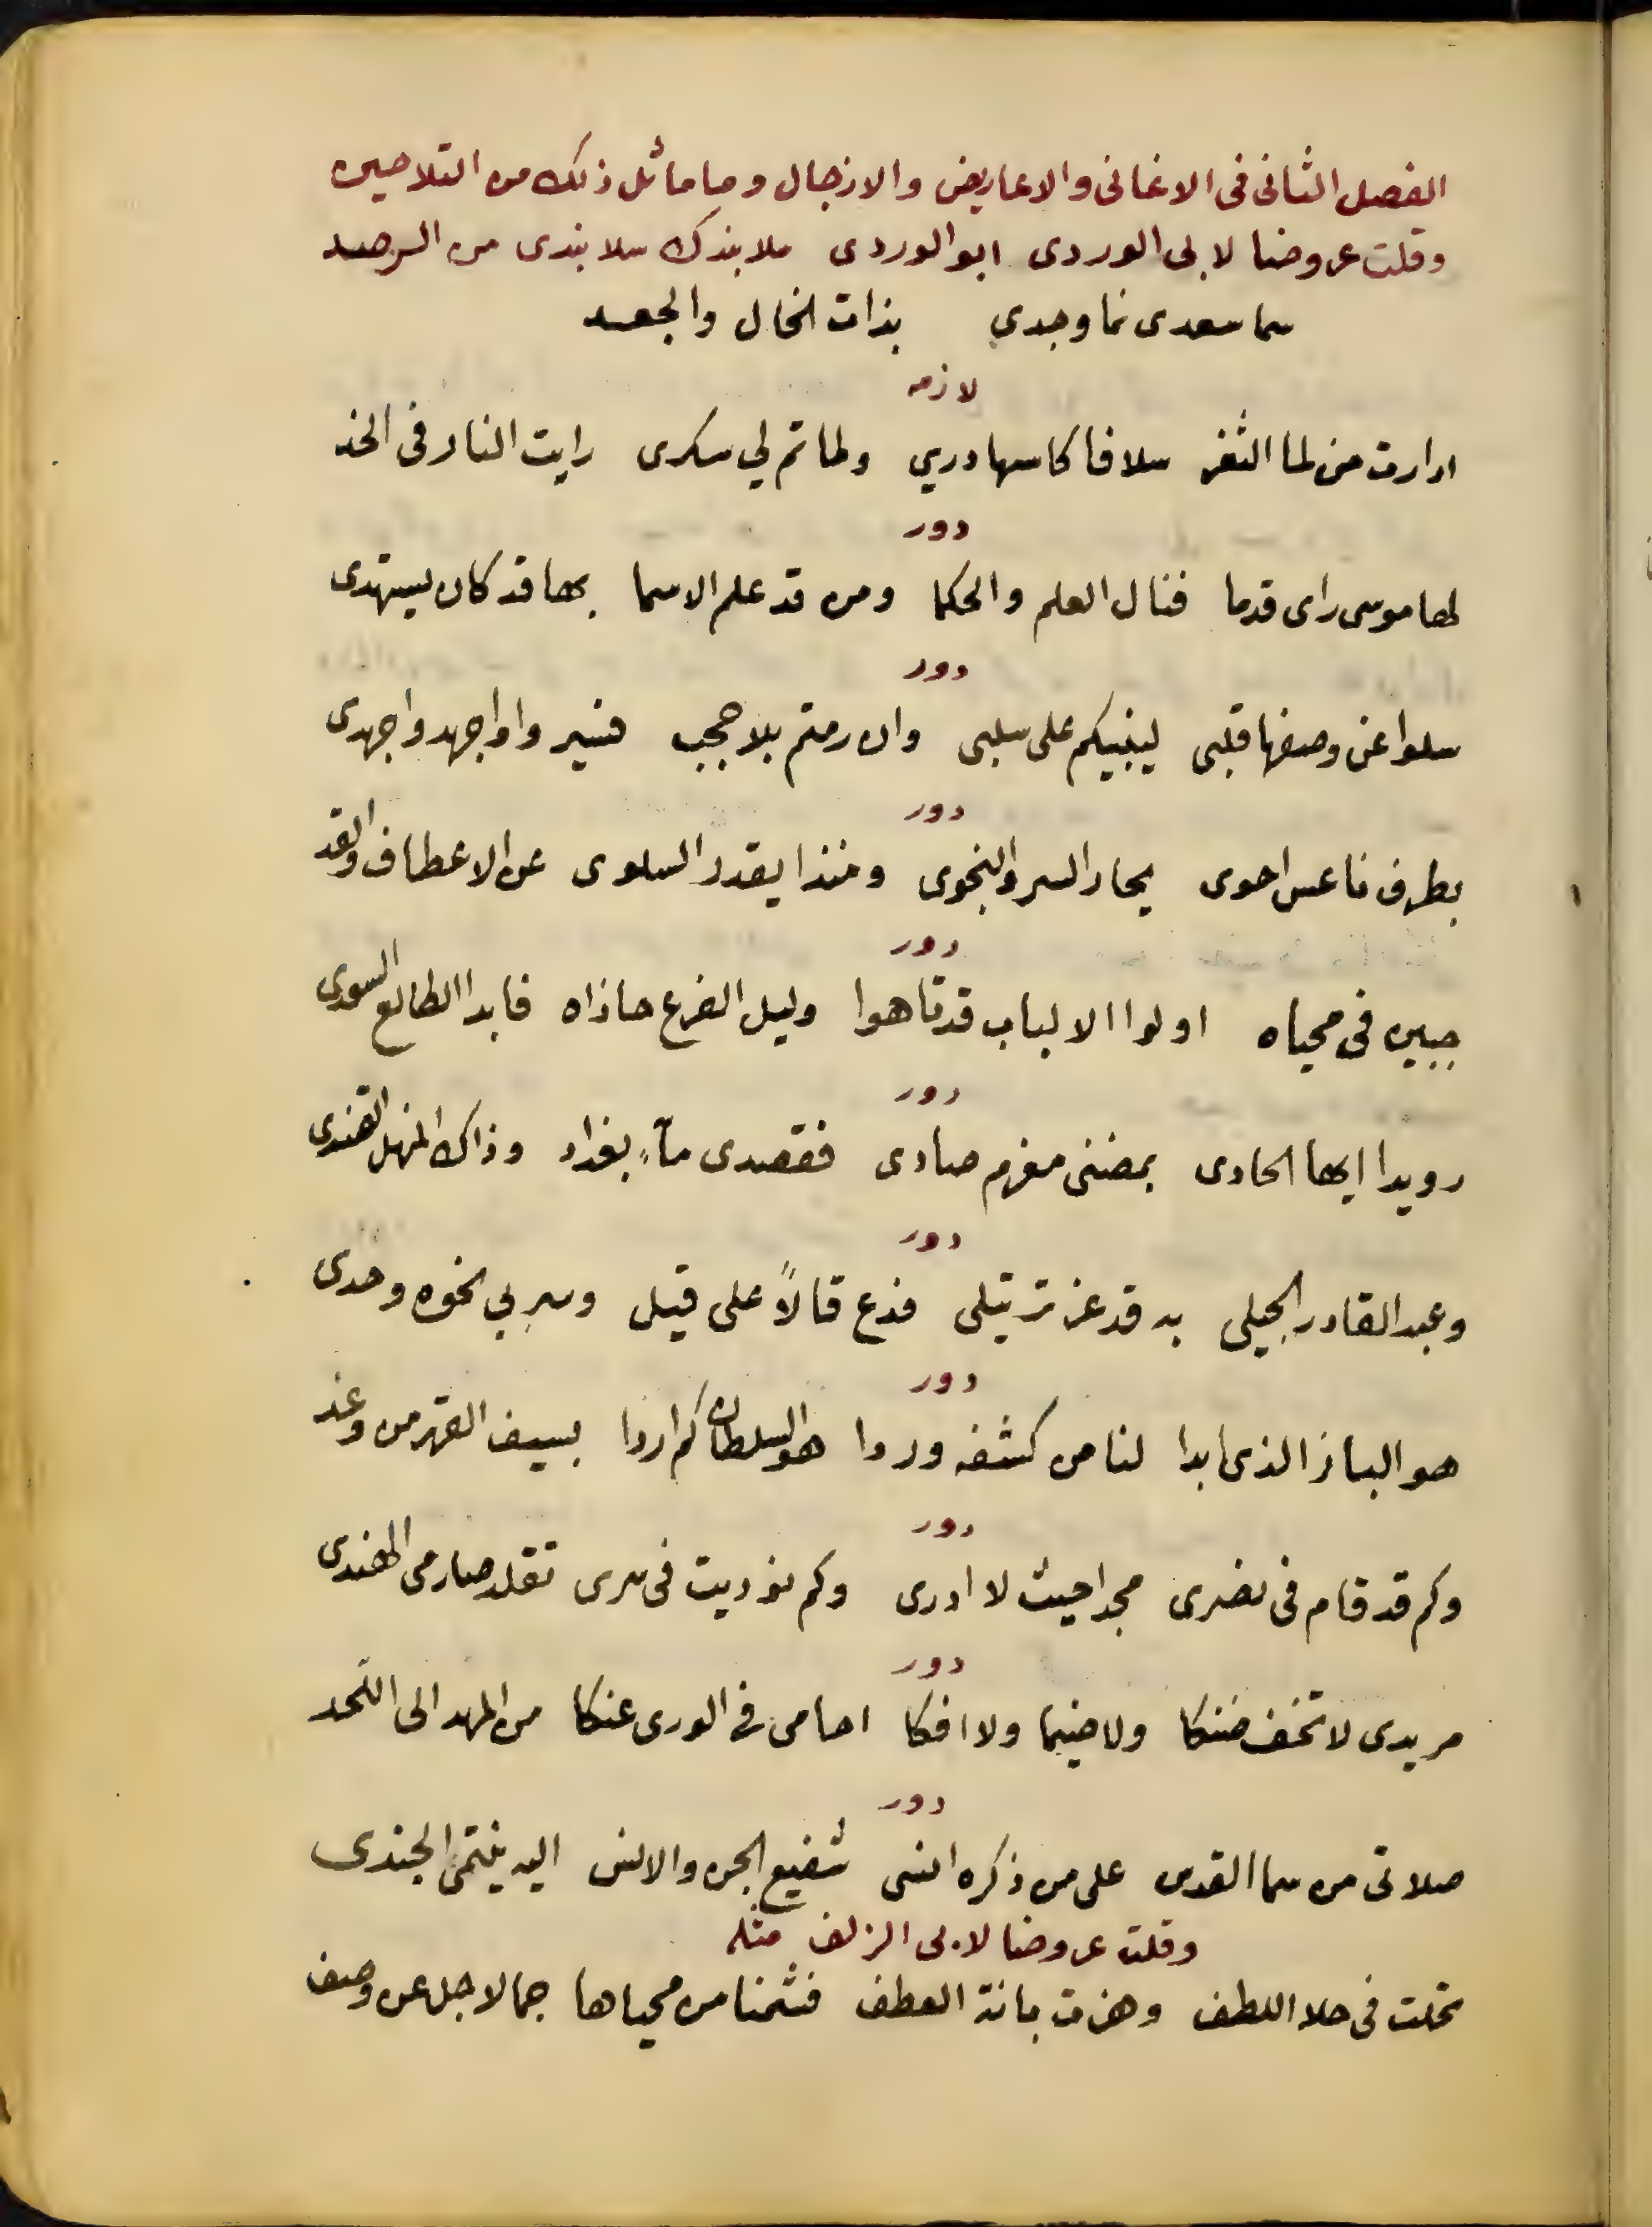 الفصل الثانى فى الاغانى والاعاريض والازجال وما ماثل ذلك من التلاحين
وقلت عروضا لابى الوردى ابو الوردى ملا بندك سلا بندى من الرصد
سما سعدى نما وجدى بذات الخال والجعد
لازمه
ادارت من لما الثغر سلافا كاسها دري ولما تم لي سكرى رايت النار فى الخد
دور
لها موسى راى قدما فنال العلم والحكما ومن قد علم الاسما بها قد كان يستهدى
دور
سلوا عن وصفها قلبى لينبيكم على سلبى وان رمتم بلا حجب فسيروا واجهدوا جهدى
دور
بطرف ناعس احوى يحار السر والنجوى ومنذا يقدر السلوى عن الاعطاف والقد
دور
جبين فى محياه اولوا الالباب قد تاهوا وليل الفرع حاذاه فابدا الطالع السعدى
دور
رويدا ايها الحادى بمضنى مغرم صادى فقصدى مآء بغداد وذاك المنهل القندى
دور
وعبد القادر الجيلى به قد عز ترتيلى فدع قالاً على قيل وسر بي نحوه وحدى
دور
هو الباز الذى ابدا لنا من كشفه وردا هو السلطان كم اردا بسيف القهر من وغد
دور
وكم قد قام فى نصرى مجدا حيث لا ادرى وكم نوديت فى سرى تقلد صارمى الهندى
دور
مريدى لا تخف ضنكا ولا ضيما ولا افكا احامى فى الورى عنكا من المهد الى اللحد
دور
صلاتى من سما القدس على من ذكره انسى شفيع الجن والانس اليه ينتمى الجندى
وقلت عروضا لابى الزلف مثله
تحلت فى حلا اللطف وهزت بانة العطف فشمنا من محياها جمالا جل عن وصف